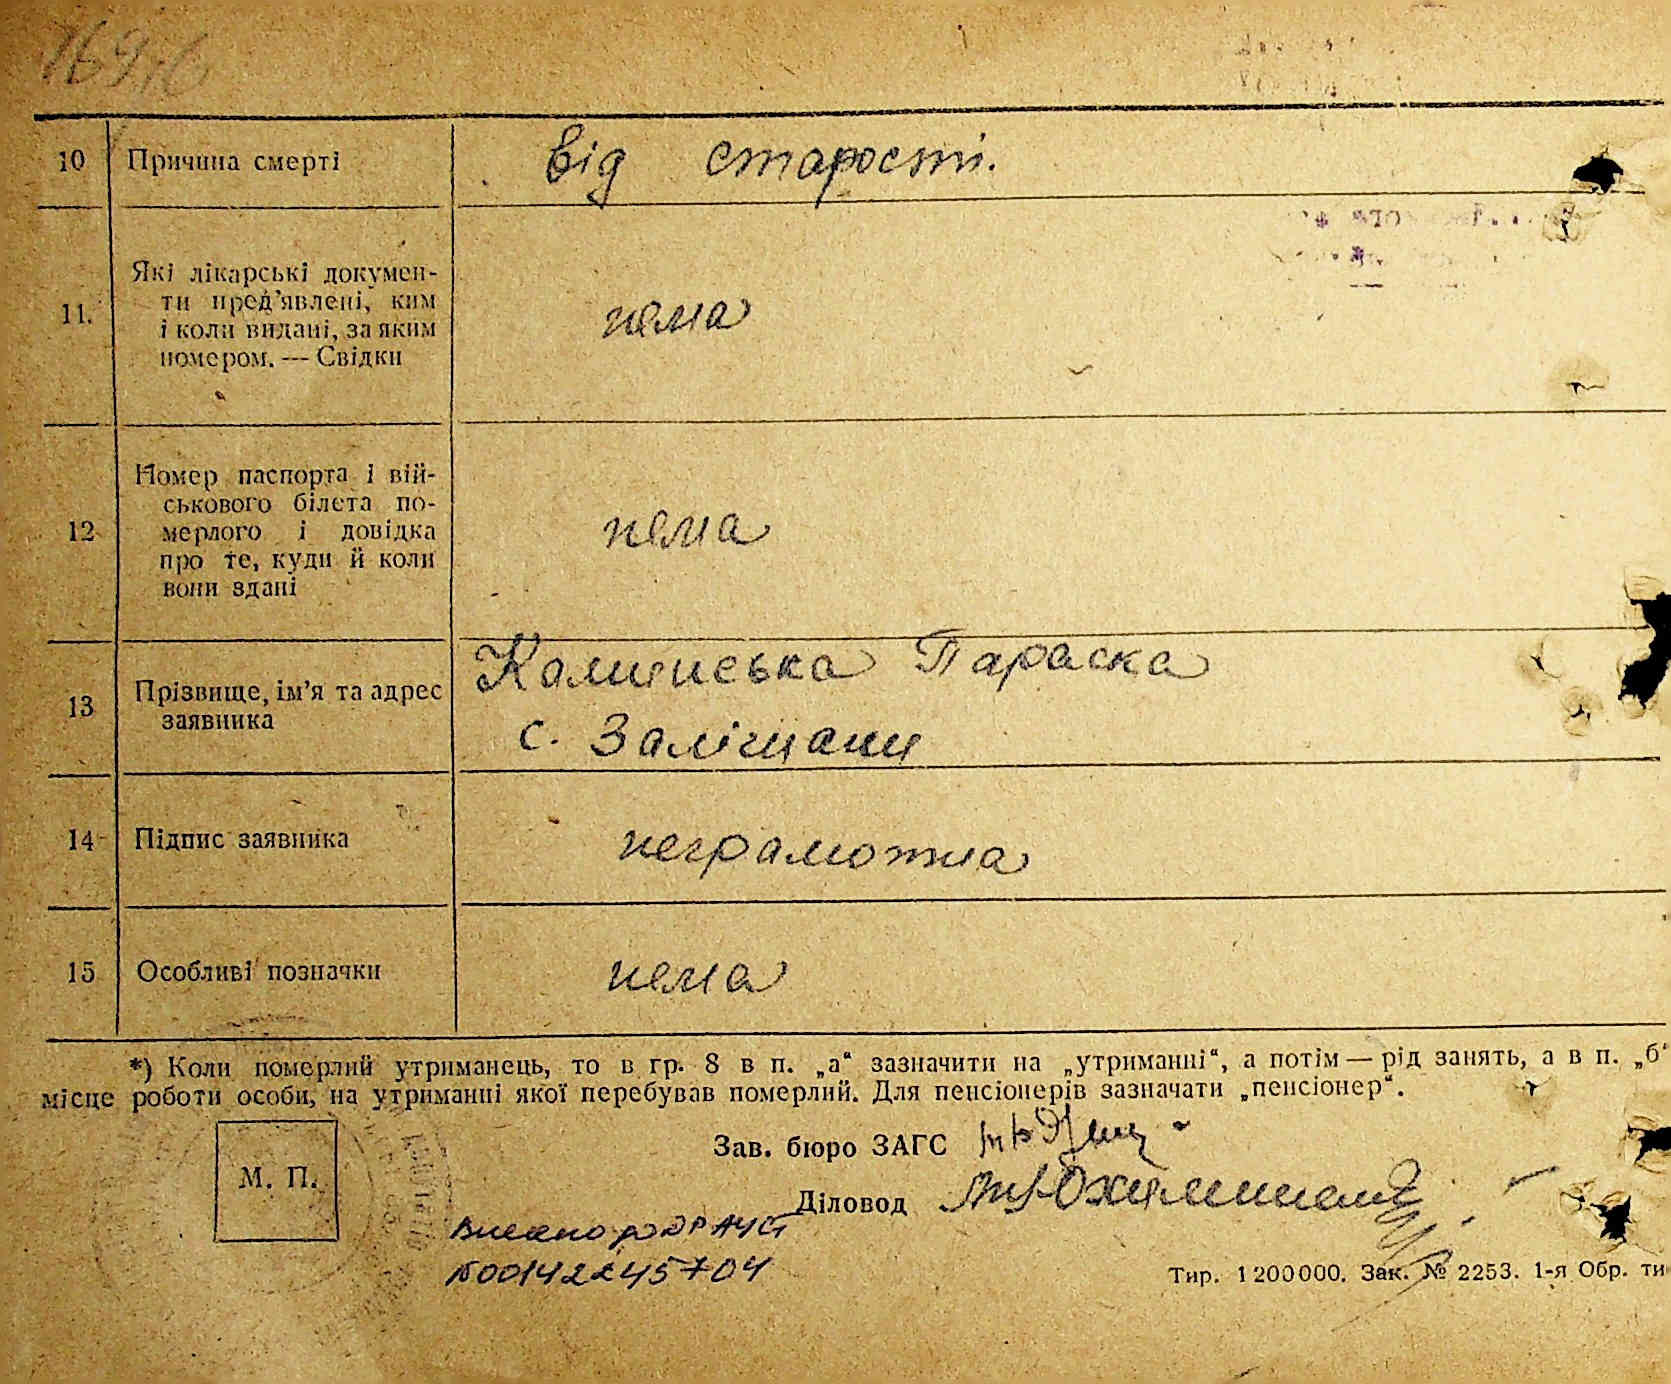 10 Причина смерті від старості.
11. Які лікарські докумен-
ти пред'явлені, ким
і коли видані, за яким
номером. — Свідки
нема
12 Номер паспорта і вій-
ськового білета по-
мерлого і довідка
про те, куди й коли
вони здані
нема
13 Прізвище, ім'я та адрес
заявника
Параска
с. Заліщани
14 Підпис заявника неграмотна
15 Особливі позначки нема
*) Коли померлий утриманець, то в гр. 8 в п. „а“ зазначити на „утриманні“, а потім — рід занять, а в п. „б“
місце роботи особи, на утриманні якої перебував померлий. Для пенсіонерів зазначати „пенсіонер“.
Зав. бюро ЗАГС
М. П.
Діловод
Внесено до ДРАЦС
№00142245704
Тир. 1200000. Зак. № 2253. 1-я Обр. ти